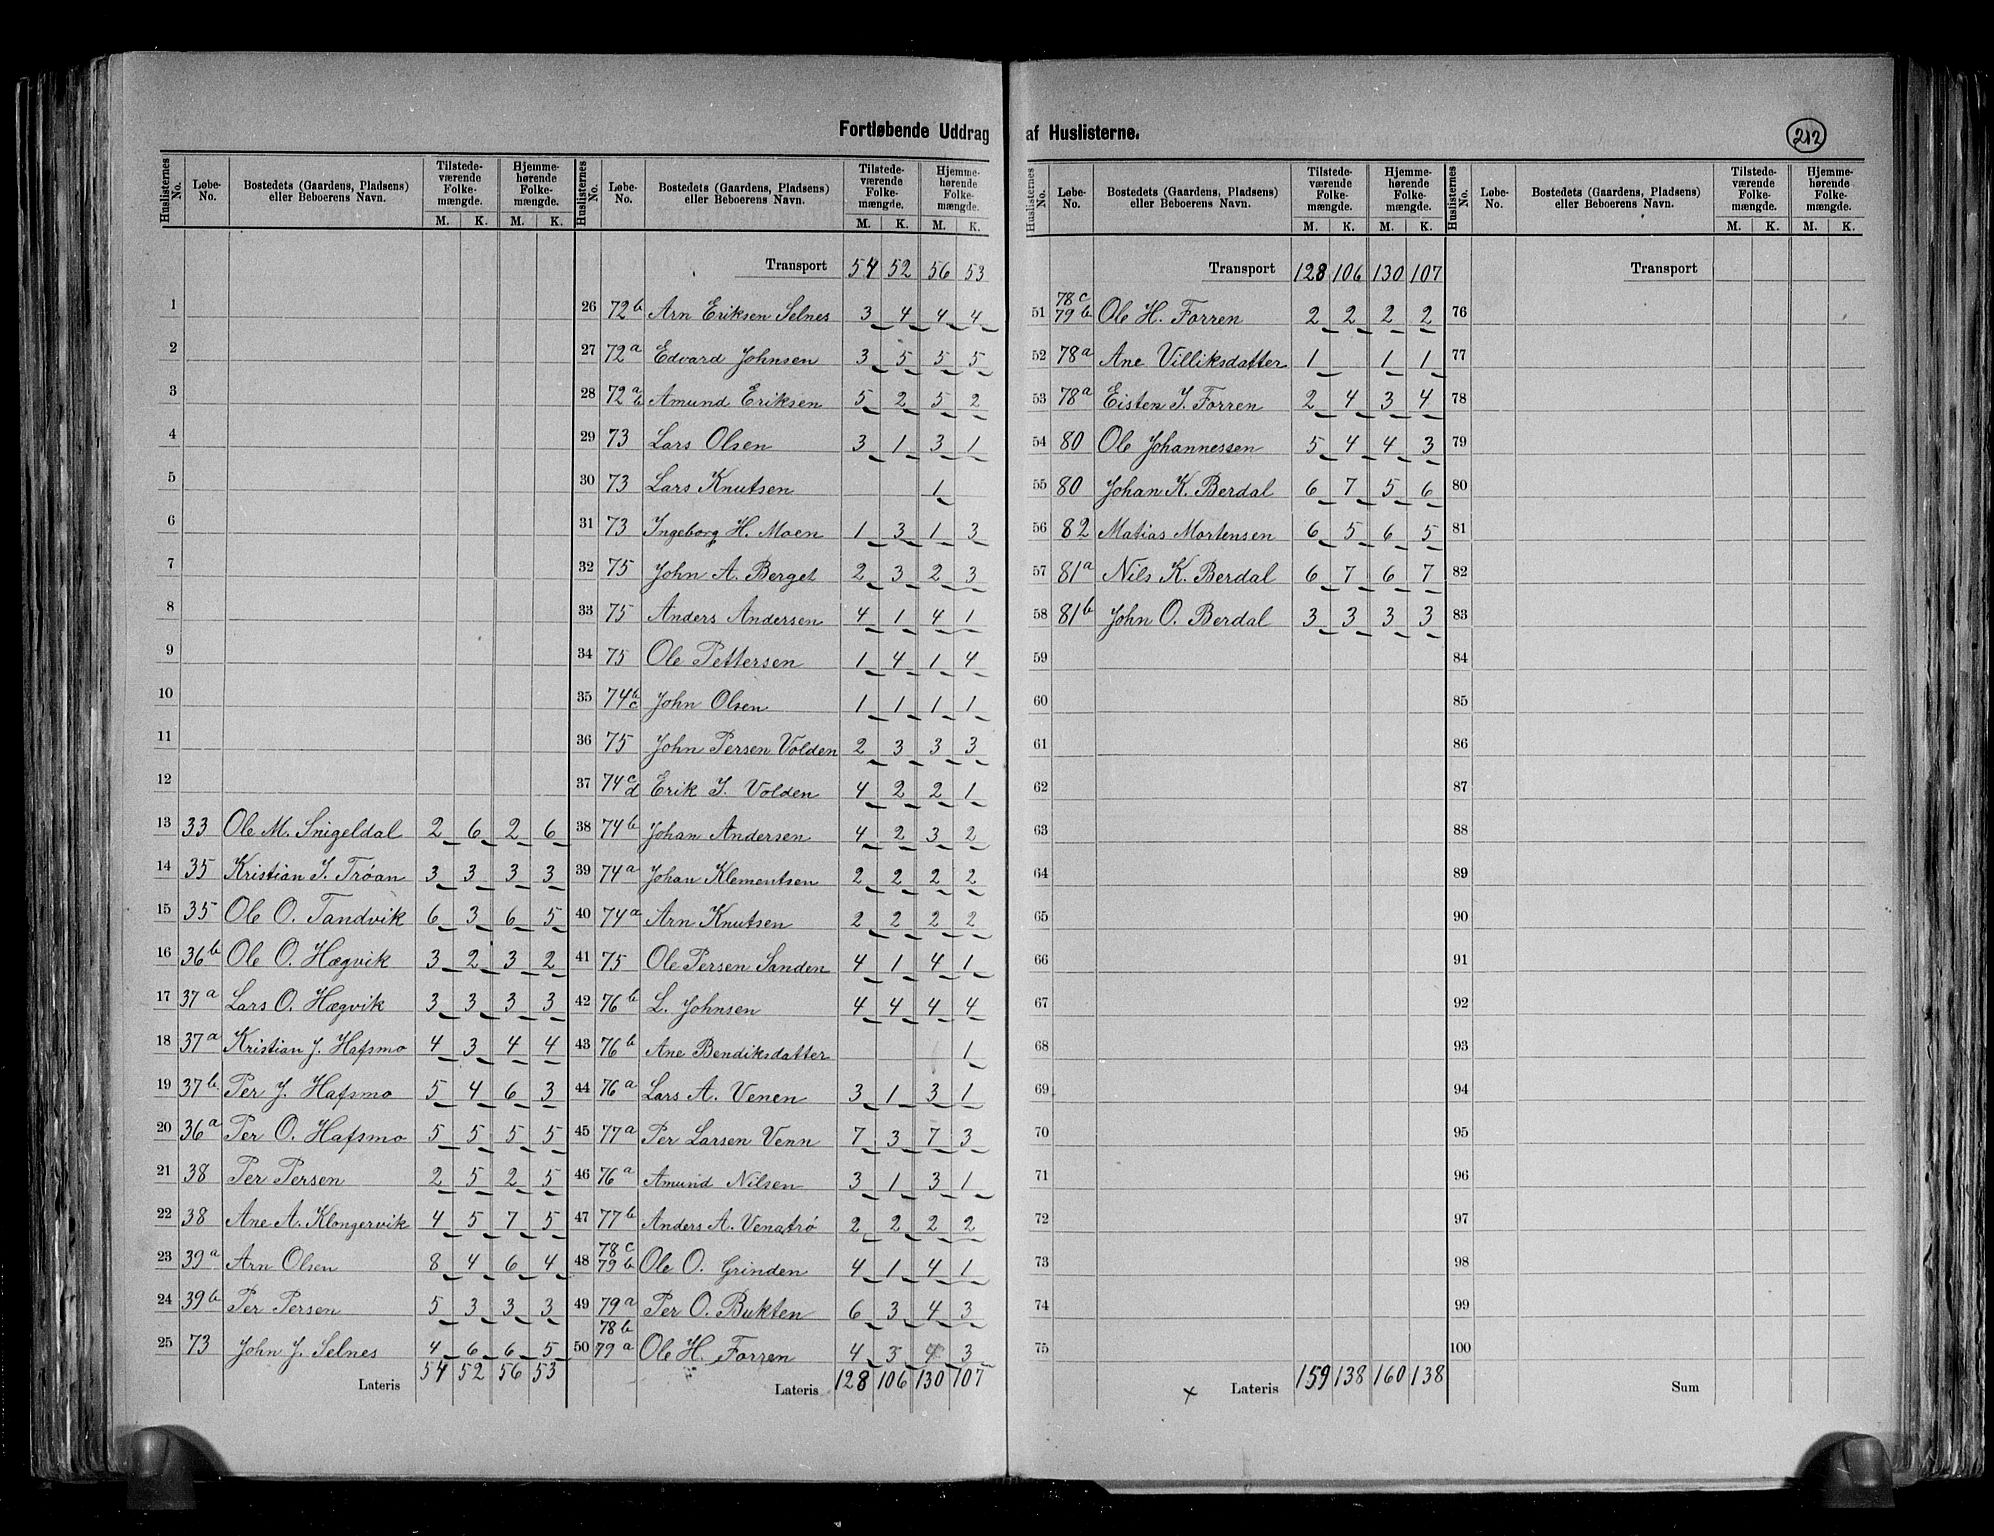 Fortløbende Uddrag af Huslisterne.
212
Huslisternes No. Løbe-No. Bostedets (Gaardens, Pladsens) eller Beboerens Navn. Tilstedeværende Folkemængde. M. K. Hjemmehørende Folkemængde. M. K.
1
2
3
4
5
6
7
8
9
10
11
12
13 33 Ole M. Snigeldal 2 6 2 6
14 35 Kristian J. Trøan 3 3 3 3
15 35 Ole O. Tandvik 6 3 6 5
16 36b Ole O. Hægvik 3 2 3 2
17 37a Lars O. Hægvik 3 3 3 3
18 37a Kristian J. Hafsmo 4 3 4 4
19 37b Per J. Hafsmo 5 4 6 3
20 36a Per O. Hafsmo 5 5 5 5
21 38 Per Persen 2 5 2 5
22 38 Ane A. Klongervik 4 5 7 5
23 39a Arn Olsen 8 4 6 4
24 39b Per Persen 5 3 3 3
25 73 John J. Selnes 4 6 6 5
Lateris 54 52 56 53
Huslisternes No. Løbe-No. Bostedets (Gaardens, Pladsens) eller Beboerens Navn. Tilstedeværende Folkemængde. M. K. Hjemmehørende Folkemængde. M. K.
Transport 54 52 56 53
26 72b Arn Eriksen Selnes 3 4 4 4
27 72a Edvard Johnsen 3 5 5 5
28 72a b Amund Eriksen 5 2 5 2
29 73 Lars Olsen 3 1 3 1
30 73 Lars Knutsen 1
31 73 Ingeborg H. Moen 1 3 1 3
32 75 John A. Berget 2 3 2 3
33 75 Anders Andersen 4 1 4 1
34 75 Ole Pettersen 1 4 1 4
35 74b c John Olsen 1 1 1 1
36 75 John Persen Volden 2 3 3 3
37 74c d Erik J. Volden 4 2 2 1
38 74b Johan Andersen 4 2 3 2
39 74a Johan Klementsen 2 2 2 2
40 74a Arn Knutsen 2 2 2 2
41 75 Ole Persen Sanden 4 1 4 1
42 76b L. Johnsen 4 4 4 4
43 76b Ane Bendiksdatter 1
44 76a Lars A. Venen 3 1 3 1
45 77a Per Larsen Venn 7 3 7 3
46 76a Amund Nilsen 3 1 3 1
47 77b Anders A. Venatrø 2 2 2 2
48 78c 79b Ole O. Grinden 4 1 4 1
49 79a Per O. Bukten 6 3 4 3
50 78b 79a Ole H. Forren 4 3 4 3
Lateris 128 106 130 107
Huslisternes No. Løbe-No. Bostedets (Gaardens, Pladsens) eller Beboerens Navn. Tilstedeværende Folkemængde. M. K. Hjemmehørende Folkemængde. M. K.
Transport 128 106 130 107
51 78c 79b Ole H. Forren 2 2 2 2
52 78a Ane Villiksdatter 1 1 1
53 78a Eisten J. Forren 2 4 3 4
54 80 Ole Johannessen 5 4 4 3
55 80 Johan K. Berdal 6 7 5 6
56 82 Matias Mortensen 6 5 6 5
57 81a Nils K. Berdal 6 7 6 7
58 81b John O. Berdal 3 3 3 3
59
60
61
62
63
64
65
66
67
68
69
70
71
72
73
74
75
x Lateris 159 138 160 138
Huslisternes No. Løbe-No. Bostedets (Gaardens, Pladsens) eller Beboerens Navn. Tilstedeværende Folkemængde. M. K. Hjemmehørende Folkemængde. M. K.
Transport
76
77
78
79
80
81
82
83
84
85
86
87
88
89
90
91
92
93
94
95
96
97
98
99
100
Sum